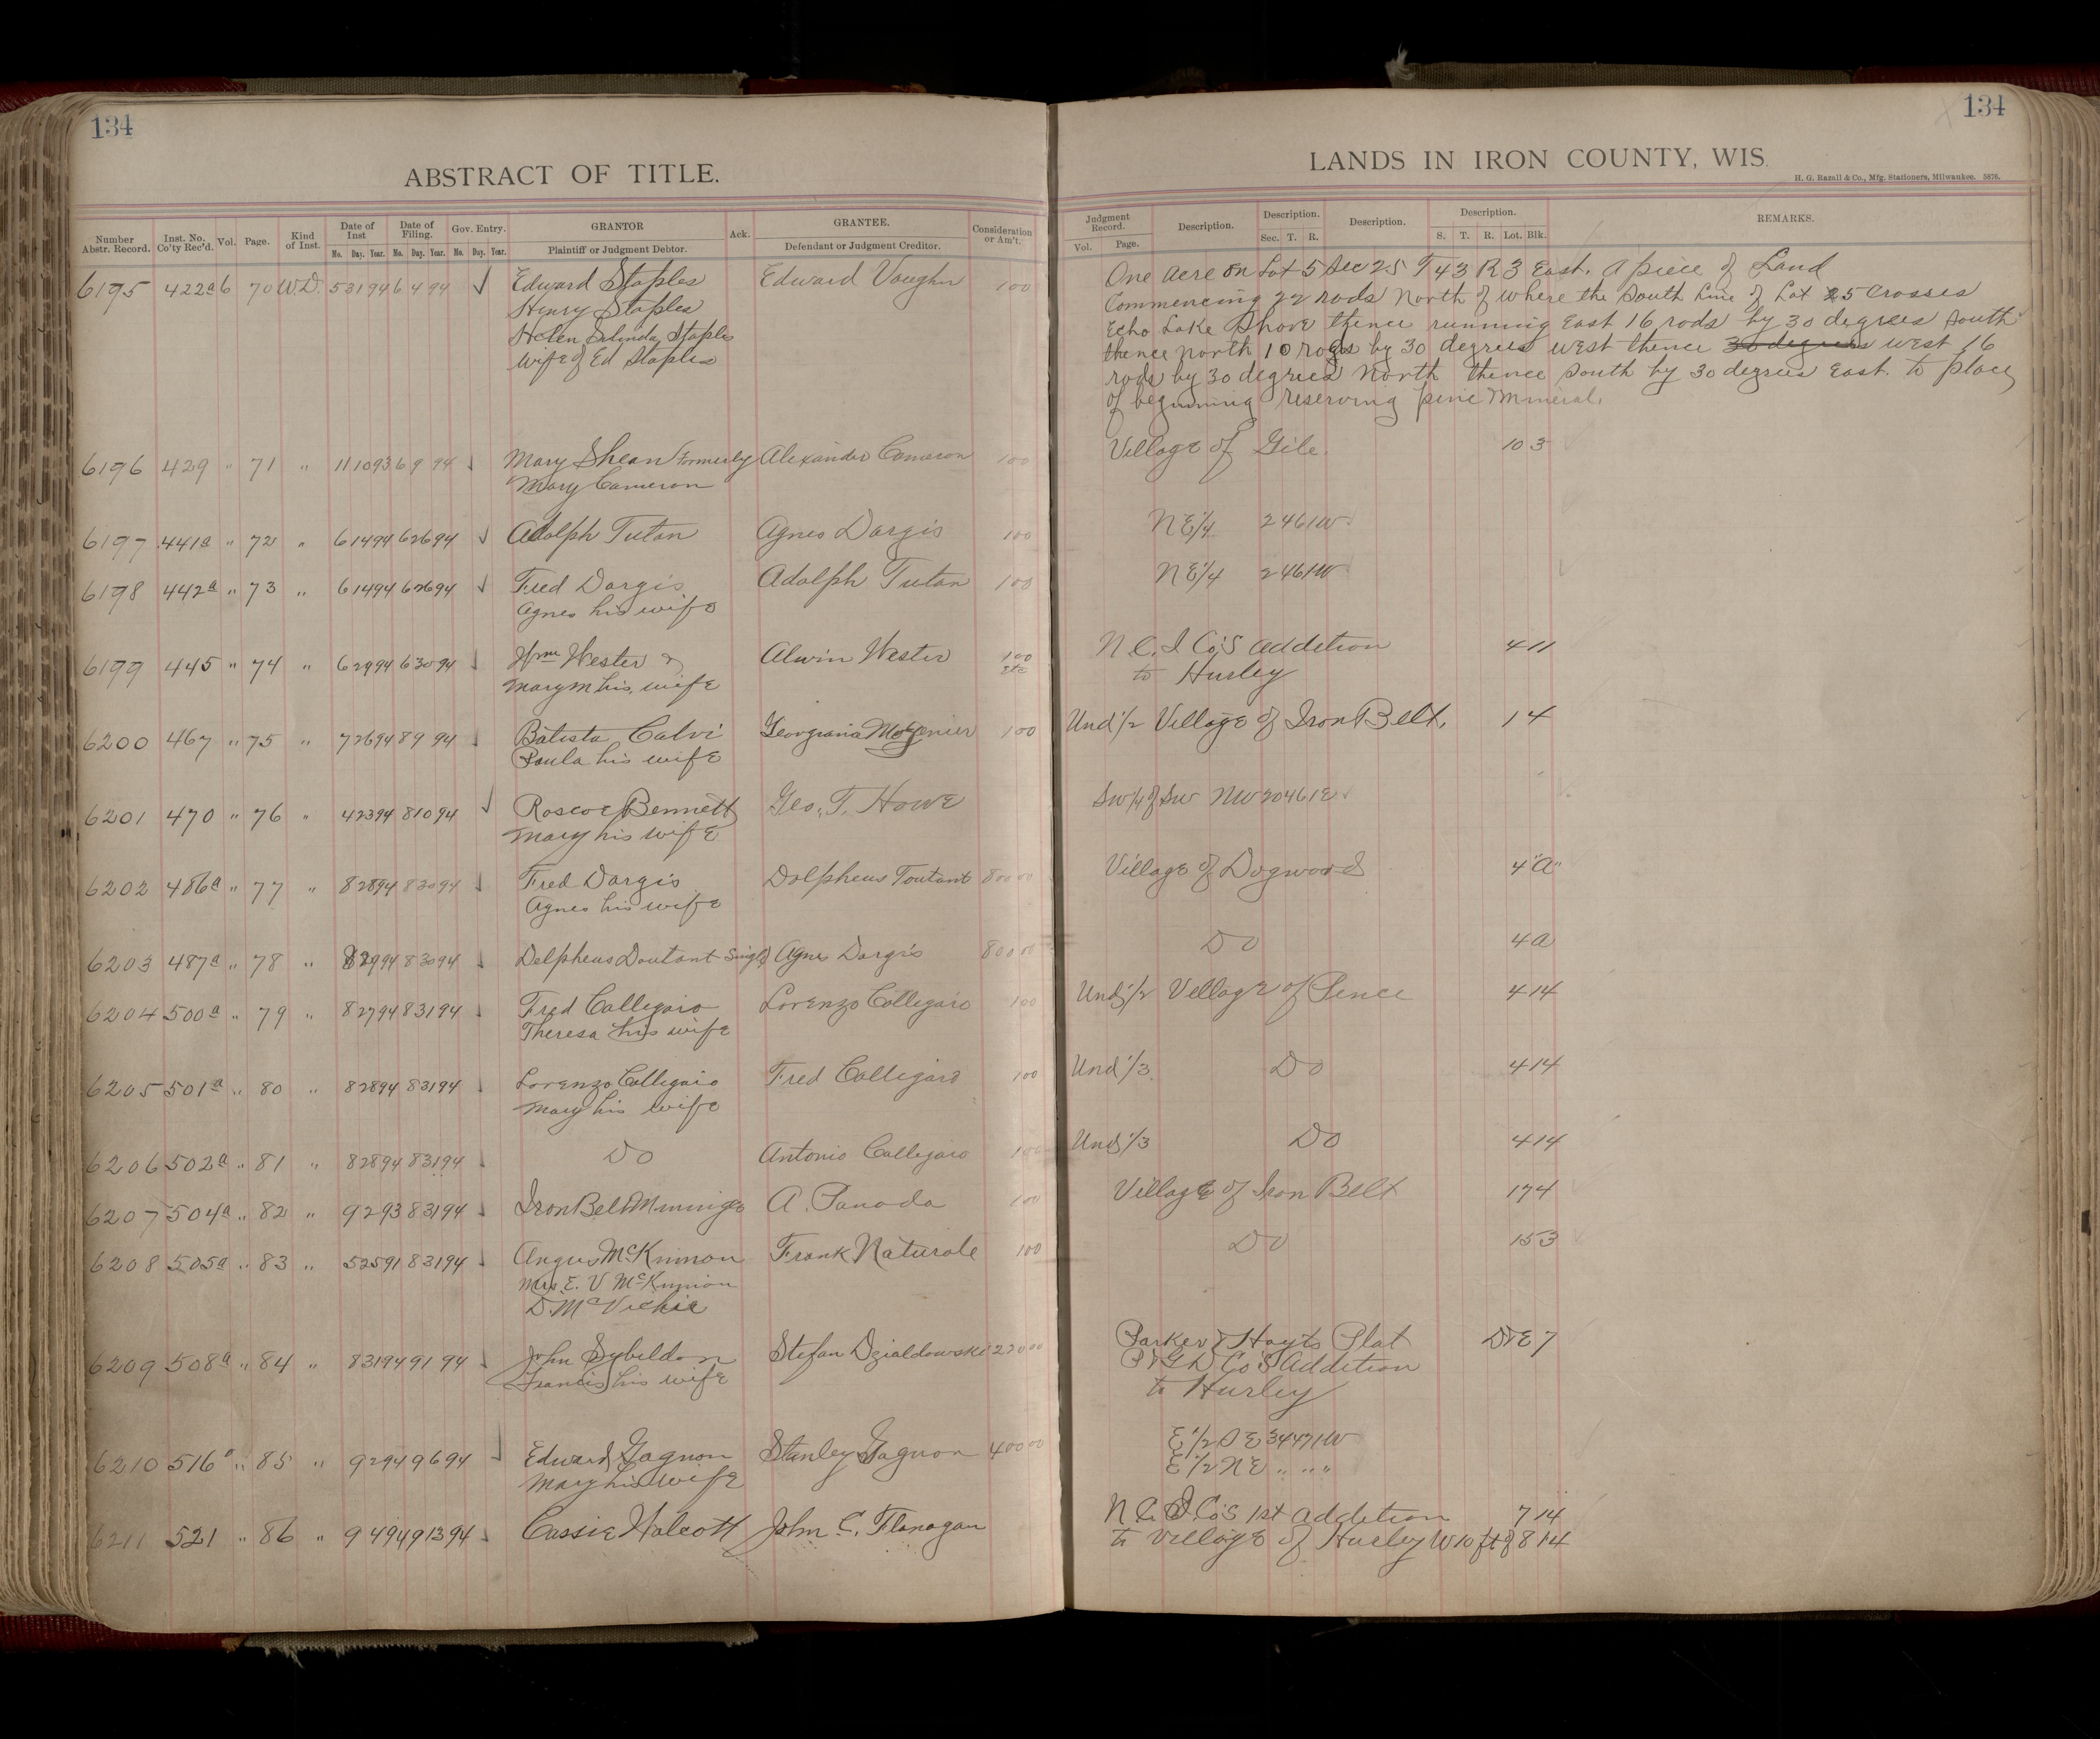 134
ABSTRACT OF TITLE.
Number Abstr. Record. Inst. No. Co'ty Rec'd. Vol. Page. Kind of Inst. Date of Inst Mo. Day. Year. Date of Filing. Mo. Day. Year. Gov. Entry. Mo. Day. Year. GRANTOR Plaintiff or Judgment Debtor. Ack. GRANTEE. Defendant or Judgment Creditor. Consideration or Am't.
6195 422a 6 70 W.D. 5 31 94 6 4 94 ✓ Edward Staples Edward Vaughn 100
Henry Staples
Helen Selinda Staples
wife of Ed Staples
6196 429 " 71 " 11 10 93 6 9 94 ✓ Mary Shean Formerly Alexander Cameron 100
Mary Cameron
6197 441a " 72 " 6 14 94 6 26 94 ✓ Adolph Tutan Agnes Dargis 100
6198 442a " 73 " 6 14 94 6 26 94 ✓ Fred Dargis Adolph Tutan 100
Agnes his wife
6199 445 " 74 " 6 29 94 6 30 94 ✓ Wm Wester & Alwin Wester 100 etc
Mary M his wife
6200 467 " 75 " 7 26 94 8 9 94 ✓ Batista Calvi Georgiana 100
Paula his wife
6201 470 " 76 " 4 23 94 8 10 94 ✓ Roscoe Bennett Geo. T. Howe
Mary his wife
6202 486a " 77 " 8 28 94 8 30 94 ✓ Fred Dargis Dolpheus Toutant 800 00
Agnes his wife
6203 487a " 78 " 8 29 94 8 30 94 ✓ Delpheus Doutant Single Agnes Dargis 800 00
6204 500a " 79 " 8 27 94 8 31 94 ✓ Fred Callegaro Lorenzo Collegaro 100
Theresa his wife
6205 501a " 80 " 8 28 94 8 31 94 ✓ Lorenzo Callegaro Fred Callegaro 100
Mary his wife
6206 502a " 81 " 8 28 94 8 31 94 ✓ Do Antonio Callegaro 100
6207 504a " 82 " 9 2 93 8 31 94 ✓ Iron Belt Mining Co A. Panoda 100
6208 505a " 83 " 5 25 91 8 31 94 ✓ Angus McKinnon Frank Naturale 100
Mrs. E. V McKinnion
D. McVichie
6209 508a " 84 " 8 31 94 9 1 94 ✓ John Sybeldon Stefan Dzialdowski 220 00
Francis his wife
6210 516a " 85 " 9 29 4 9 6 94 ✓ Edward Gagnon Stanley Gagnon 400 00
Mary his wife
6211 521 " 86 " 9 4 94 9 13 94 ✓ Cassie Holcott John C. Flanagan
134
LANDS IN IRON COUNTY, WIS.
H. G. Razall & Co., Mfg. Stationers, Milwaukee. 5876.
Judgment Record. Vol. Page. Description. Description. Sec. T. R. Description. Description. S. T. R. Lot. Blk. REMARKS.
One Acre on Lot 5 Sec 25 T 43 R 3 East. A piece of Land
Commencing 22 rods North of where the South Line of Lot 25 Crosses
Echo Lake Shore thence running East 16 rods by 30 degrees South
thence north 10 rods by 30 degrees west thence 30 degrees west 16
rods by 30 degrees North thence South by 30 degrees East. to place
of beginning reserving pine Mineral.
Village of Gile. 10 3
NE1/4 2 46 1W
NE1/4 2 46 1W
N C. I Co's Addition 4 11
to Hurley
Und 1/2 Village of Iron Belt. 1 4
SW 1/4 of SW NW 20 46 1E
Village of Dogwood 4 "A"
Do 4 a
Und 1/2 Village of Pence 4 14
Und 1/3 Do 4 14
Und 1/3 Do 4 14
Village of Iron Belt 17 4
Do 15 3
Parker & Hoyts Plat D & E 7
P & G D Co's Addition
to Hurley
E 1/2 S E 34 47 1W
E 1/2 N E " " "
N. C. I. Co's 1st Addition 7 14
to Village of Hurley W 10 ft of 8 14